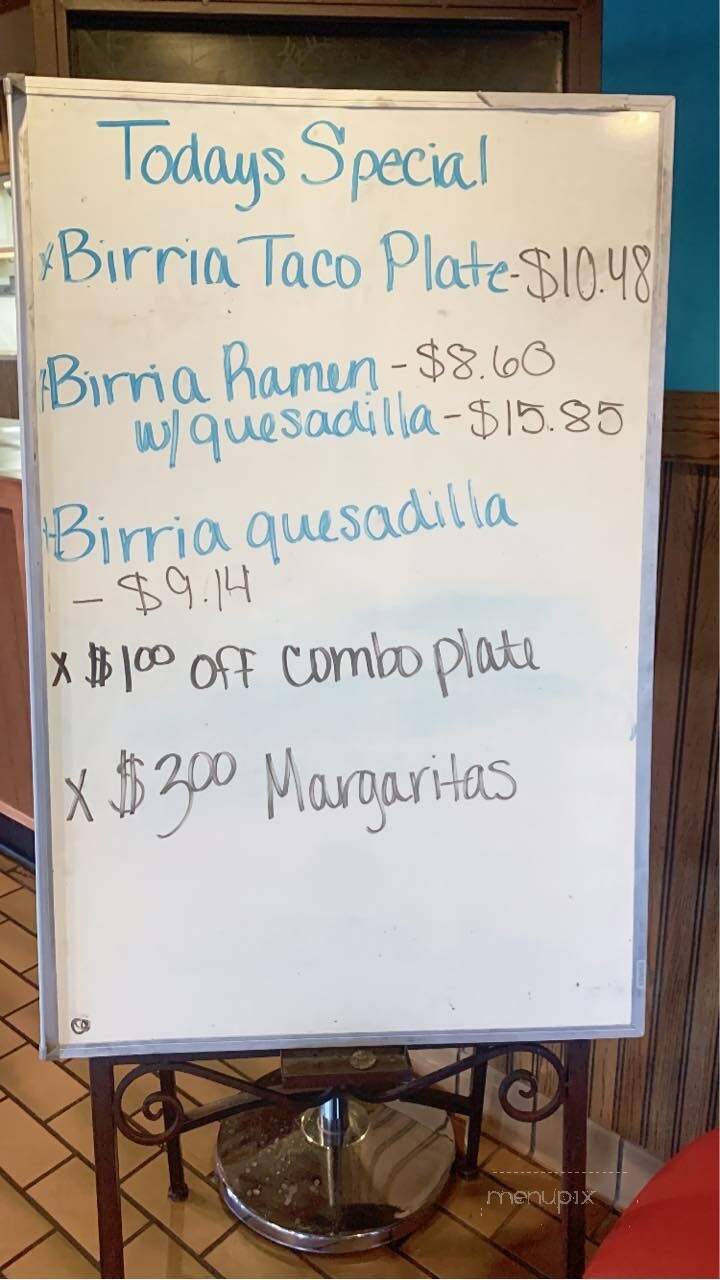 Todays Special
x Birria Taco Plate - $10.48
x Birria Ramen - $8.60
w/ quesadilla - $15.85
x Birria quesadilla
- $9.14
x $1.00 off combo plate
x $3.00 Margaritas
menupix